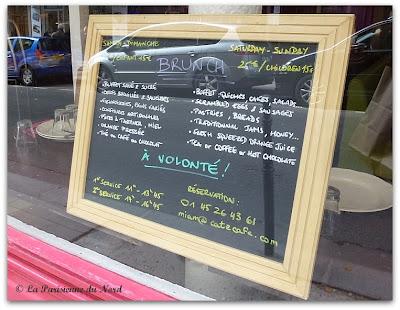 SAMEDI - DIMANCHE
SATURDAY - SUNDAY
BRUNCH
/ENFANT 15€
25€/CHILDREN 15€
- BUFFET SALÉ & SUCRÉ
- OEUFS BROUILLÉS & SAUSISSES
- VIENNOISERIES, PAINS VARIÉS
- CONFITURES ARTISANALES
- PÂTES À TARTINER, MIEL
- ORANGE PRESSÉE
- THÉ OU CAFÉ OU CHOCOLAT
- BUFFET, QUICHES, CAKES, SALADS
- SCRAMBLED EGGS & SAUSAGES
- PASTRIES, BREADS
- TRADITIONNAL JAMS, HONEY...
- FRESH SQUEEZED ORANGE JUICE
- TEA OR COFFEE OR HOT CHOCOLATE
À VOLONTÉ !
1er SERVICE 11h - 13h45
2e SERVICE 14h - 16h45
RÉSERVATION:
01 45 26 43 61
miam@catzcafe.com
© La Parisienne du Nord